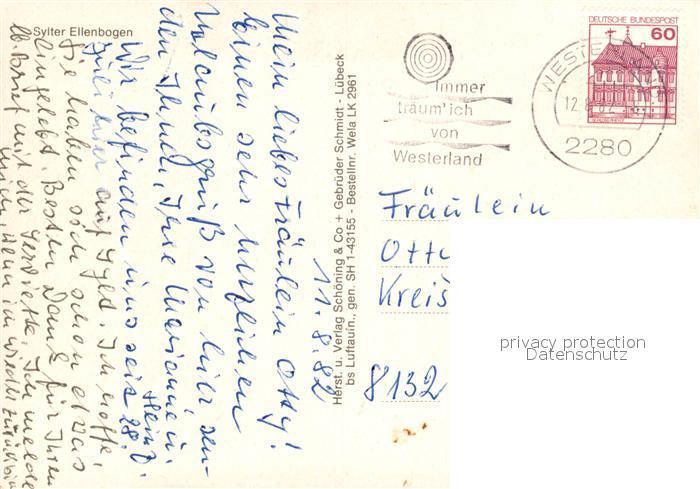 Sylter Ellenbogen
Mein liebes Fräulein Otty!
Einen sehr herzlichen
Urlaubsgruß von hier sen-
den Ihnen, Ihre Marianne u.
Heinz.
Wir befinden uns seit 28.
Juli hier auf Sylt. Ich hoffe,
Sie haben sich schon etwas
eingelebt. Besten Dank für Ihren
lb. Brief mit der Serviette. Ich melde
mich, wenn ich wieder zurück bin
11.8.82
Herst. u. Verlag Schöning & Co + Gebrüder Schmidt - Lübeck
bs Luftaufn., gen. SH 1-43155 - Bestellnr. Wela LK 2961
Immer
träum' ich
von
Westerland
DEUTSCHE BUNDESPOST
60
WESTE
12.8.82
2280
Fräulein
Otty
Kreis
8132
privacy protection
Datenschutz